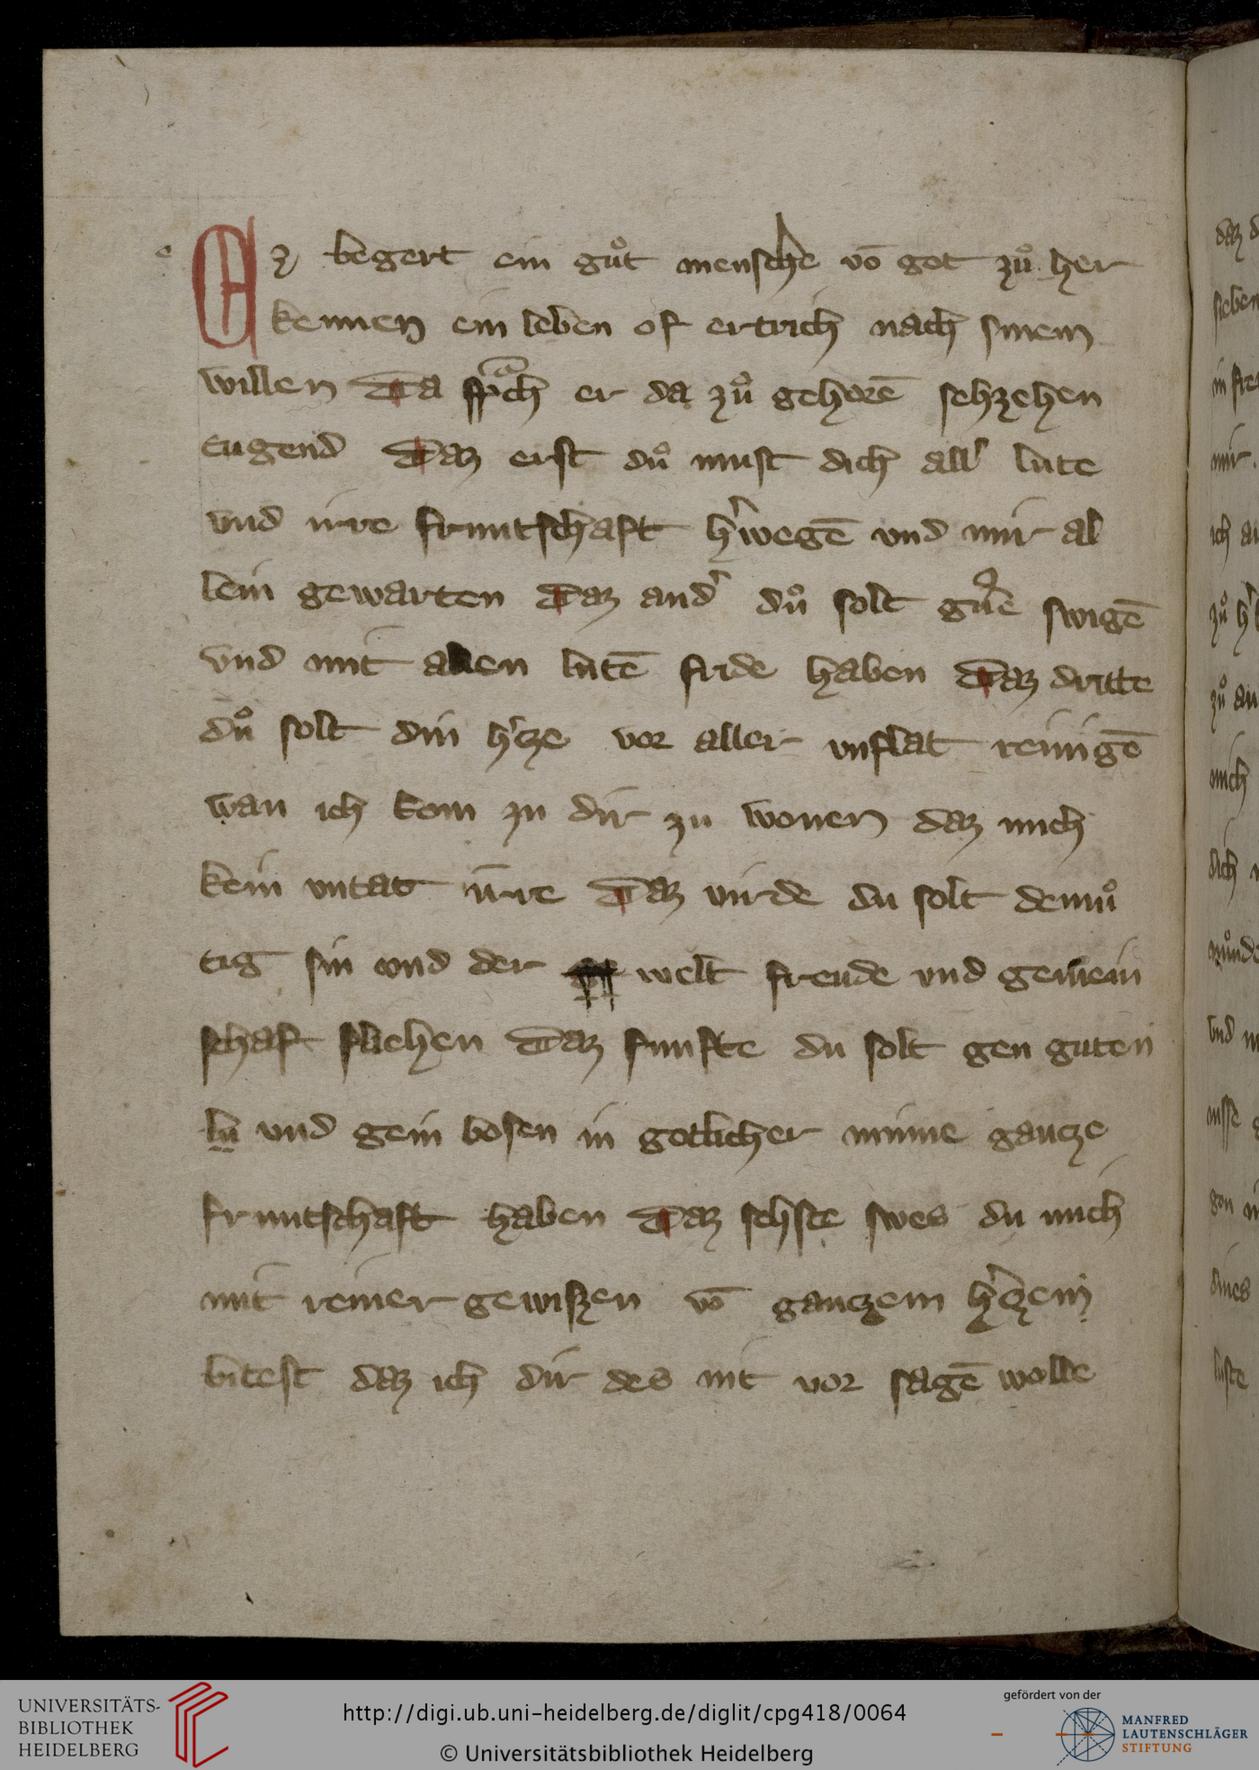 Ez begert ein gůt mensche vō got zů her
kennen ein leben of ertrich nach sinem
willen Da spͣch er da zů gehorē sehzehen
tugend Daz erst dů must dich all' lute
vnd irre fruntschaft h'wegē vnd mir al
lein gewarten Daz and' dů solt swigē
vnd mit allen lutē fride haben Daz dritte
dů solt din h'tze vor aller vnflat reinigē
wan ich kom zu dir zu wonen daz mich
kein vntat irre Daz virde du solt demů
tig sin vnd der welt freude vnd gemein
schaft fliehen Daz funfte du solt gen guten
lu vnd gein bosen in gotlicher minne gantze
fruntschaft haben Daz sehste swes du mich
mit reiner gewiszen vō gantzem h'tzem
bitest daz ich dir des nit vor sagē wolle
UNIVERSITÄTS-
BIBLIOTHEK
HEIDELBERG
http://digi.ub.uni-heidelberg.de/diglit/cpg418/0064
© Universitätsbibliothek Heidelberg
gefördert von der
MANFRED
LAUTENSCHLÄGER
STIFTUNG